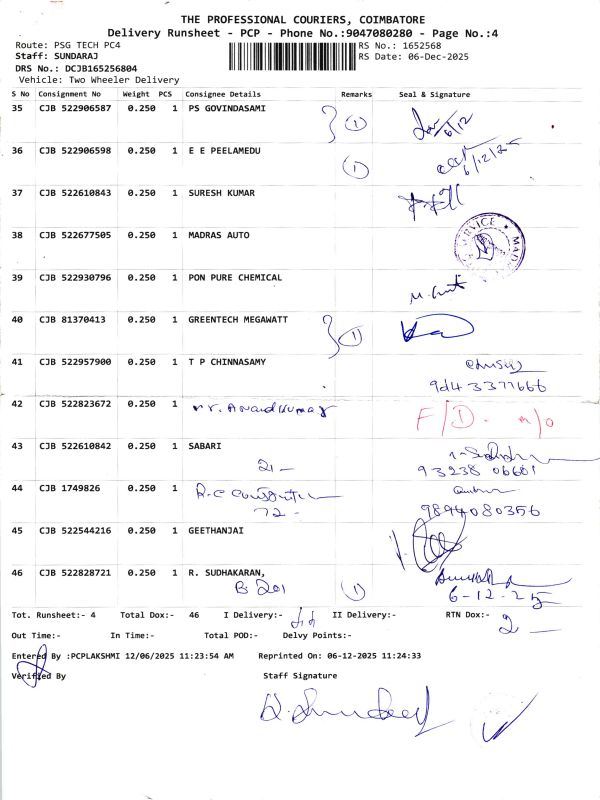 THE PROFESSIONAL COURIERS, COIMBATORE
Delivery Runsheet - PCP - Phone No.:9047080280 - Page No.:4
Route: PSG TECH PC4 RS No.: 1652568
Staff: SUNDARAJ RS Date: 06-Dec-2025
DRS No.: DCJB165256804
Vehicle: Two Wheeler Delivery
S No Consignment No Weight PCS Consignee Details Remarks Seal & Signature
35 CJB 522906587 0.250 1 PS GOVINDASAMI 1 6/12
36 CJB 522906598 0.250 1 E E PEELAMEDU 1 6/12/25
37 CJB 522610843 0.250 1 SURESH KUMAR
38 CJB 522677505 0.250 1 MADRAS AUTO SERVICE
39 CJB 522930796 0.250 1 PON PURE CHEMICAL
40 CJB 81370413 0.250 1 GREENTECH MEGAWATT 1
41 CJB 522957900 0.250 1 T P CHINNASAMY
42 CJB 522823672 0.250 1 Anand Kumar F/D.
43 CJB 522610842 0.250 1 SABARI
2 - 93238 06601
44 CJB 1749826 0.250 1 R.C
72 - 9894080356
45 CJB 522544216 0.250 1 GEETHANJAI
46 CJB 522828721 0.250 1 R. SUDHAKARAN,
B 201 1 6-12-25
Tot. Runsheet:- 4 Total Dox:- 46 I Delivery:- II Delivery:- RTN Dox:- 2 -
Out Time:- In Time:- Total POD:- Delvy Points:-
Entered By :PCPLAKSHMI 12/06/2025 11:23:54 AM Reprinted On: 06-12-2025 11:24:33
Verified By Staff Signature